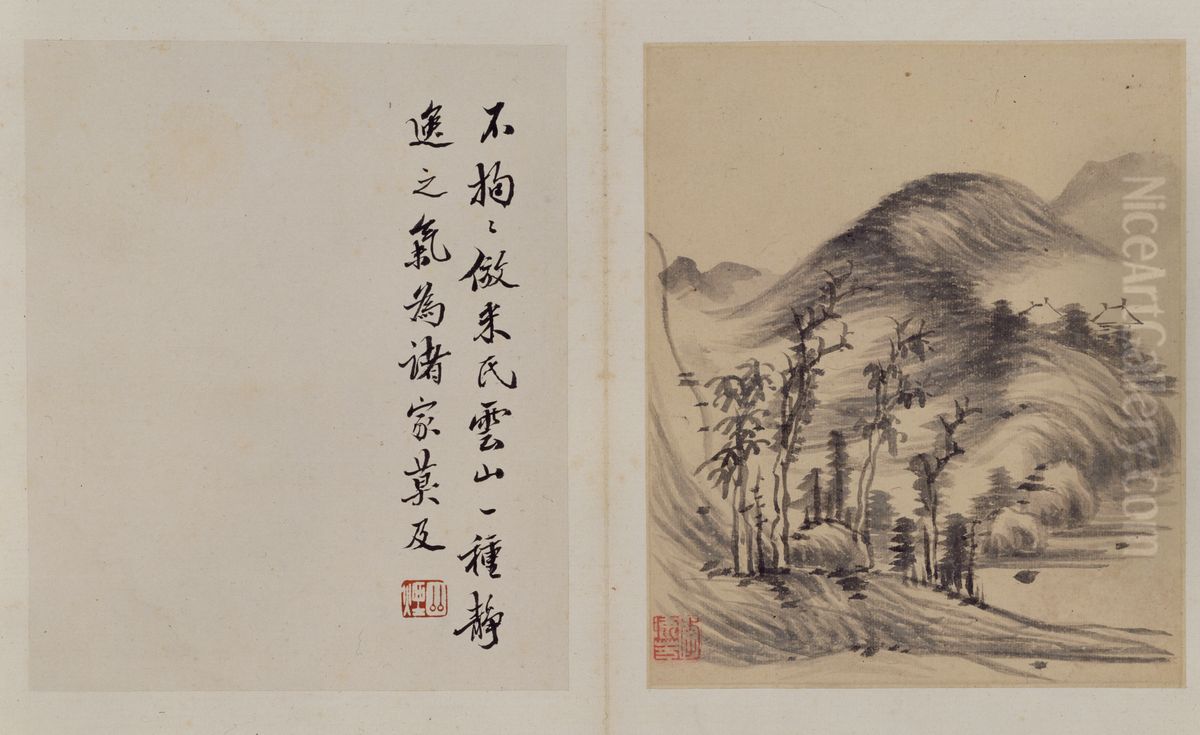 不拘〻倣米氏雲山一種靜
逸之氣為諸家莫及
NiceArtGallery.com